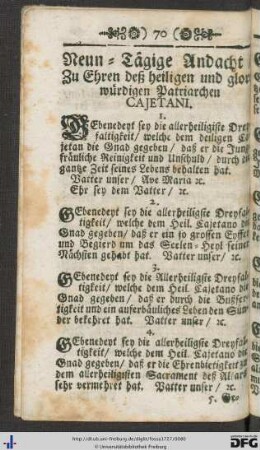 70
Neun-Tägige Andacht
Zu Ehren deß heiligen und glor
würdigen Patriarchen
CAJETANI.
1.
GEbenedeyt sey die allerheiligiste Drey
faltigkeit/ welche dem heiligen C
jetan die Gnad gegeben/ daß er die Jung
fräuliche Reinigkeit und Unschuld/ durch di
gantze Zeit seines Lebens behalten hat.
Vatter unser/ Ave Maria ꝛc.
Ehr sey dem Vatter/ ꝛc.
2.
GEbenedeyt sey die allerheiligste Dreyfal
tigkeit/ welche dem Heil. Cajetano die
Gnad gegeben/ daß er ein so grossen Eyffer
und Begierd um das Seelen-Heyl seiner
Nächsten gehabt hat. Vatter unser/ ꝛc.
3.
GEbenedeyt sey die Allerheiligste Dreyfal
tigkeit/ welche dem Heil. Cajetano die
Gnad gegeben/ daß er durch die Bußfer
tigkeit und ein auferbäuliches Leben den Sün
der bekehret hat. Vatter unser/ ꝛc.
4.
GEbenedeyt sey die allerheiligste Dreyfal
tigkeit/ welche dem Heil. Cajetano die
Gnad gegeben/ daß er die Ehrenbietigkeit zu
dem allerheiligisten Sacrament deß Altars
sehr vermehret hat. Vatter unser/ ꝛc.
5. Ge-
© Universitätsbibliothek Freiburg
DFG